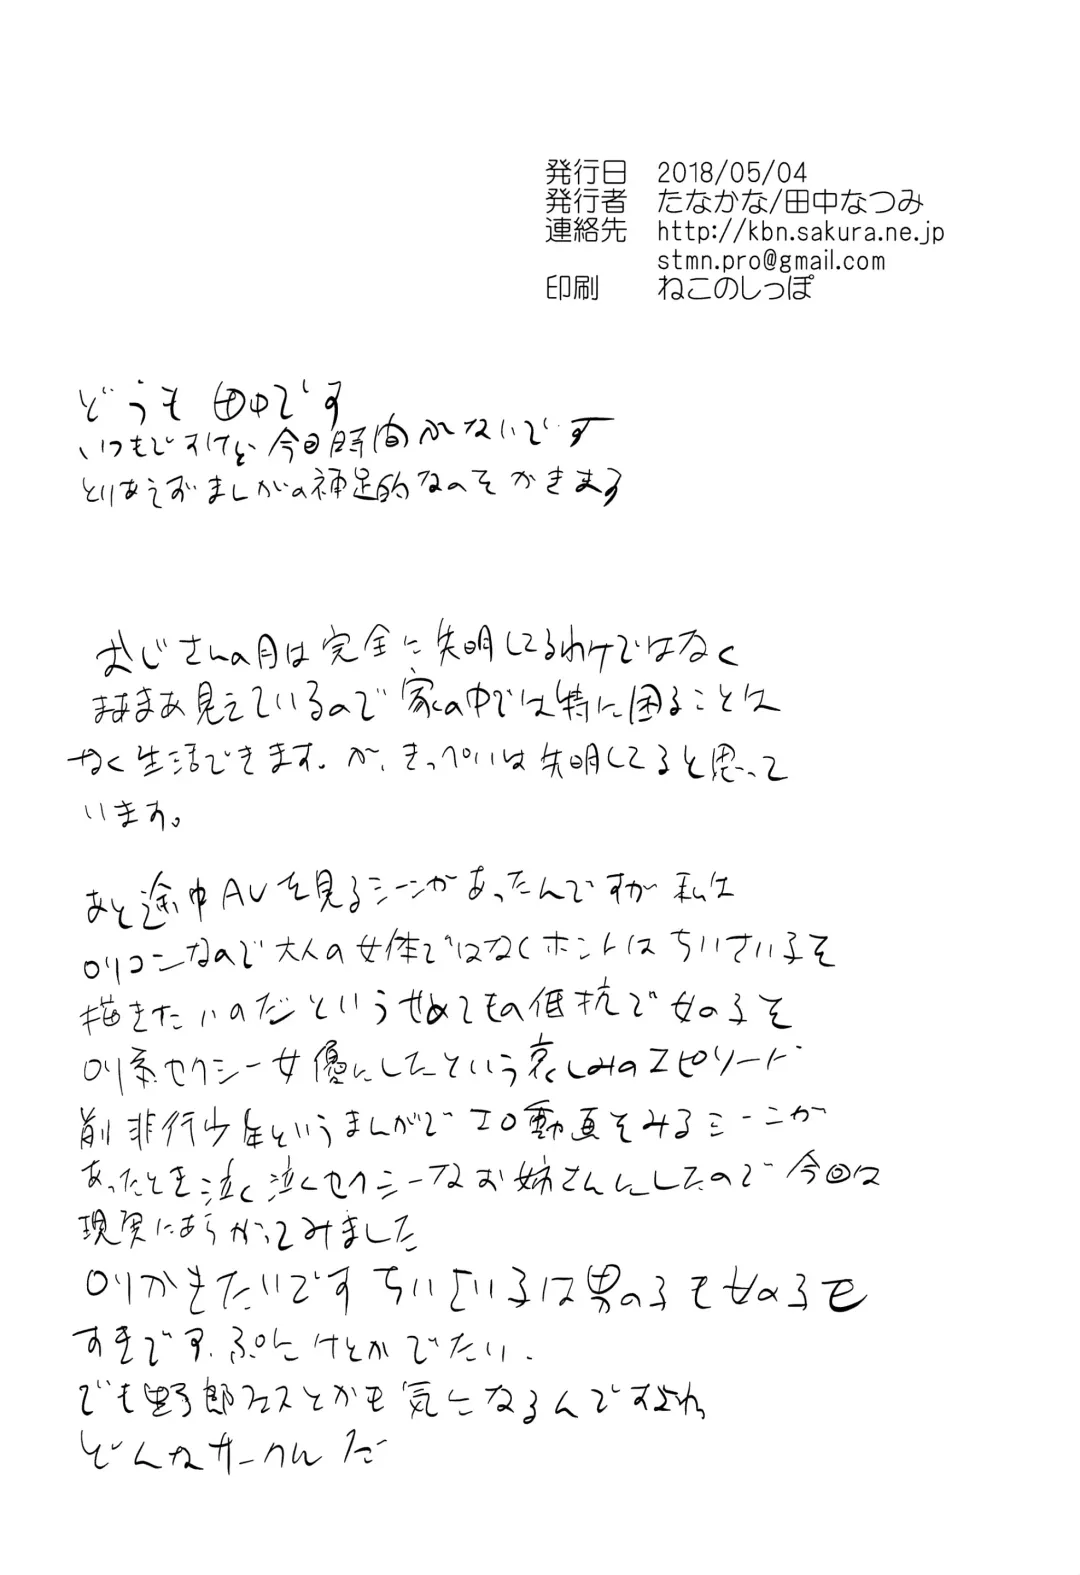 発行日 2018/05/04
発行者 たなかな/田中なつみ
連絡先 http://kbn.sakura.ne.jp
stmn.pro@gmail.com
印刷 ねこのしっぽ
どうも 田中です
いつもですけど 今回時間がないです
とりあえずまんがの補足的なのをかきます
おじさんの目は完全に失明してるわけではなく
まあまあ見えているので家の中では特に困ることは
なく生活できます。が、きっぺいは失明してると思って
います。
あと途中AVを見るシーンがあったんですが 私は
ロリコンなので大人の女体ではなくホントはちいさい子を
描きたいのだというせめてもの低抗で女の子を
ロリ系セクシー女優にしたという哀しみのエピソード
前 非行少年というまんがでエロ動画をみるシーンが
あったとき泣く泣くセクシーなお姉さんにしたので今回は
現実にあらがってみました
ロリかきたいです ちいさい子は男の子も女の子も
すきです、ぷにけとかでたい、
でも野郎フェスとかも気になるんですよね
どんなサークルだ